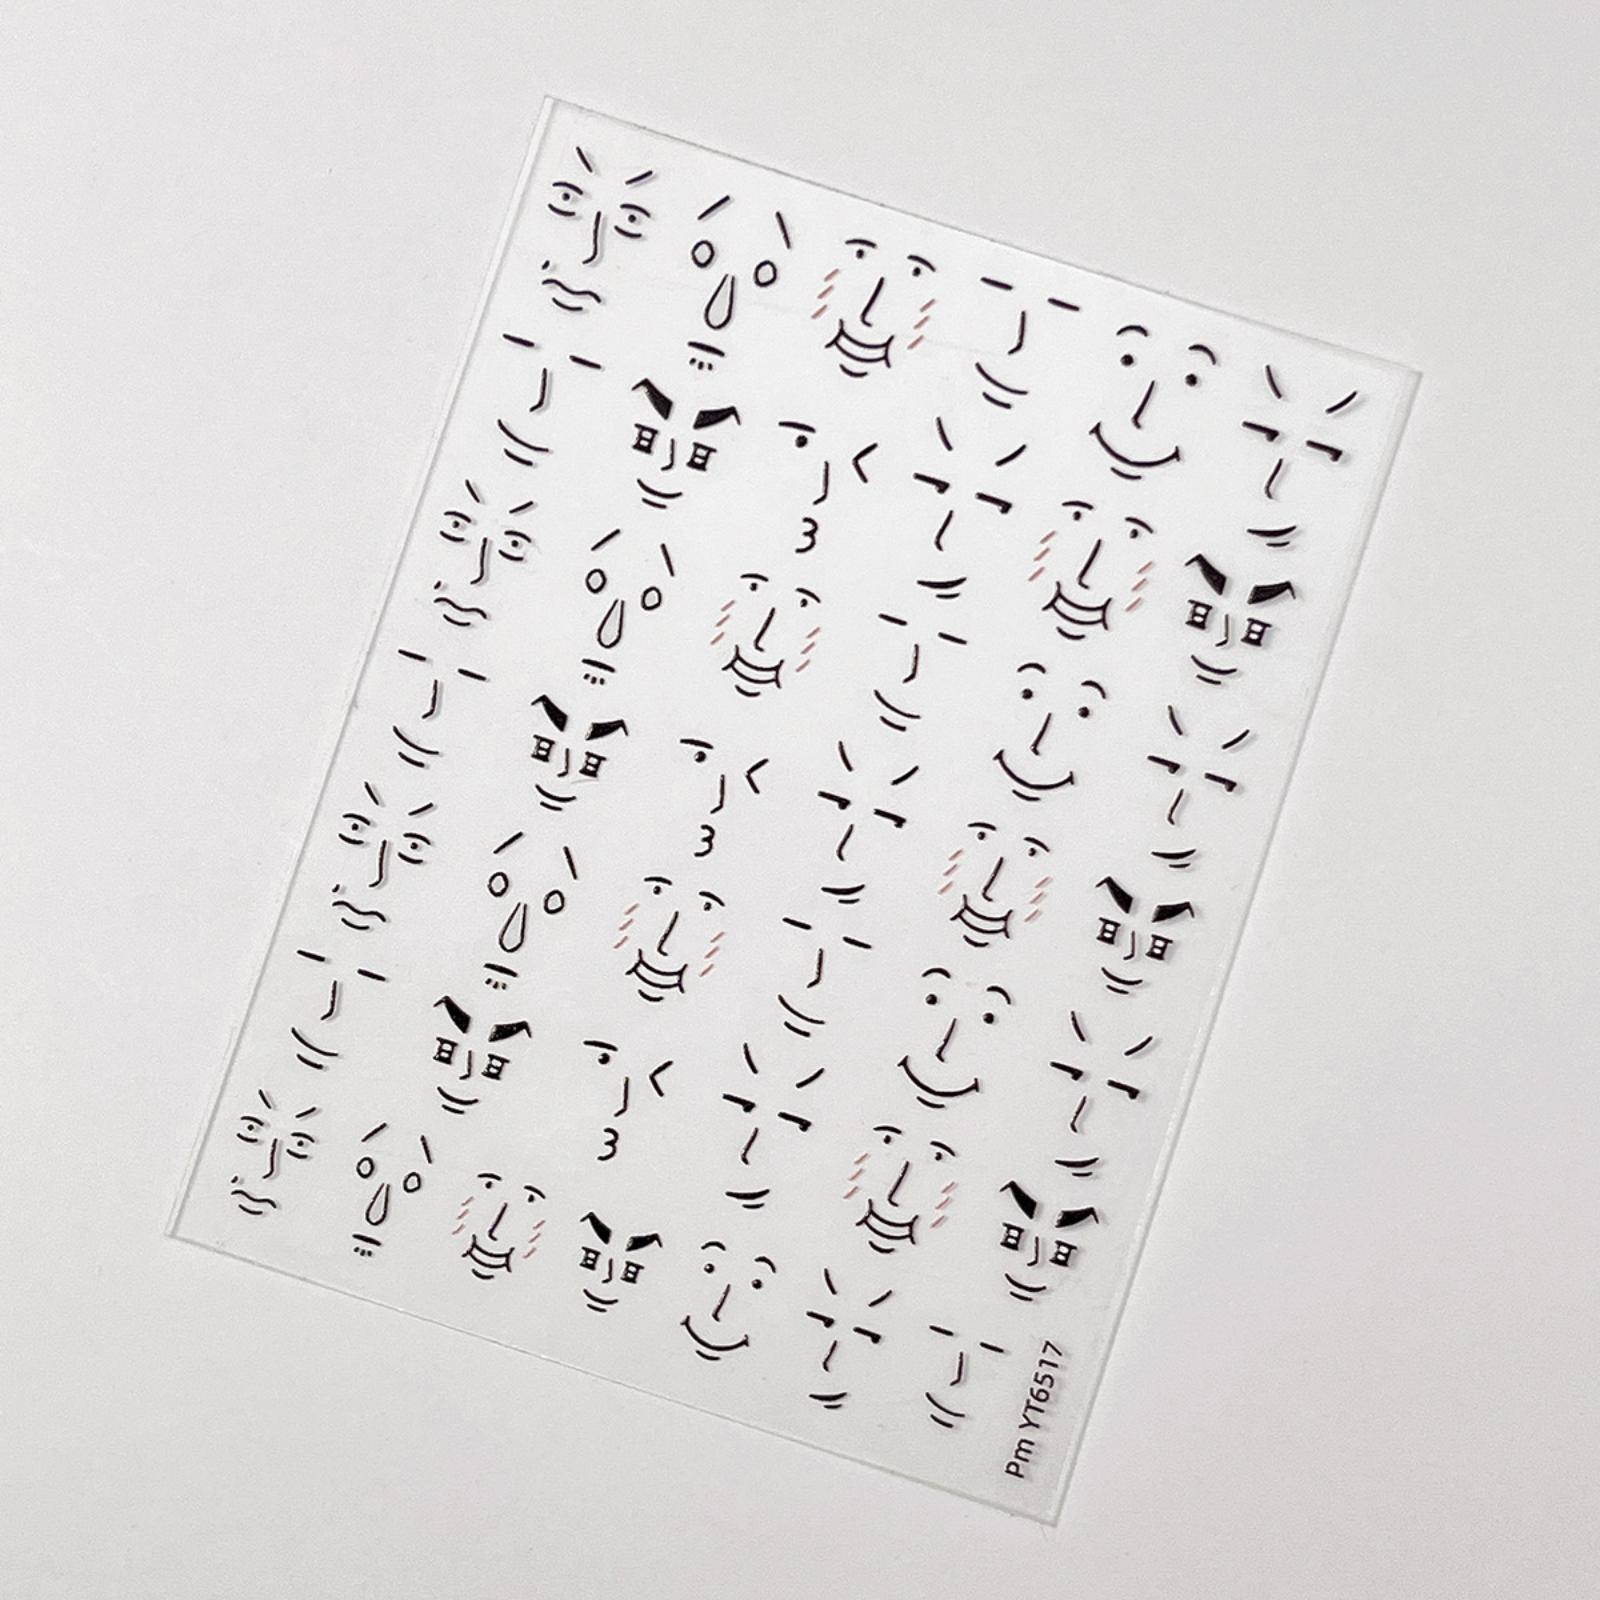 Pm YT6517